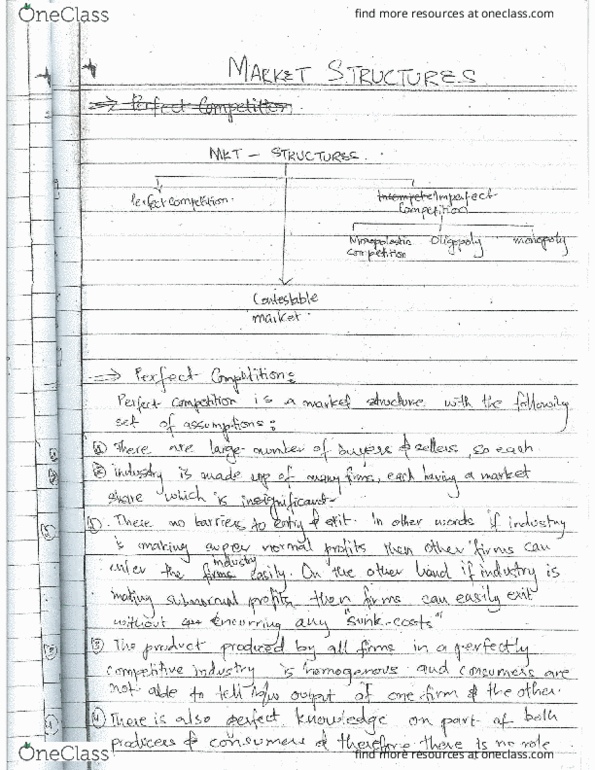 OneClass
find more resources at oneclass.com
MARKET STRUCTURES
=> Perfect Competition
MKT - STRUCTURES.
Perfect competition.
Imperfect
Competition
Monopolastic
Competition
Oligopoly
monopoly
Contestable
market.
=> Perfect Competition:
Perfect competition is a market structure with the following
set of assumptions:
① There are large number of buyers & sellers, so each
② industry is made up of many firms, each having a market
share which is insignificant.
There no barriers to entry & exit. In other words if industry
is making super normal profits then other firms can
industry
enter the firms easily. On the other hand if industry is
making subnormal profits, then firms can easily exit
without encurring any "sunk-costs"
③ The product produced by all firms in a perfectly
competitive industry is homogenous and consumers are
not able to tell b/w output of one firm & the other.
④ There is also perfect knowledge on part of both
producers & consumers & therefore there is no role
OneClass
find more resources at oneclass.com